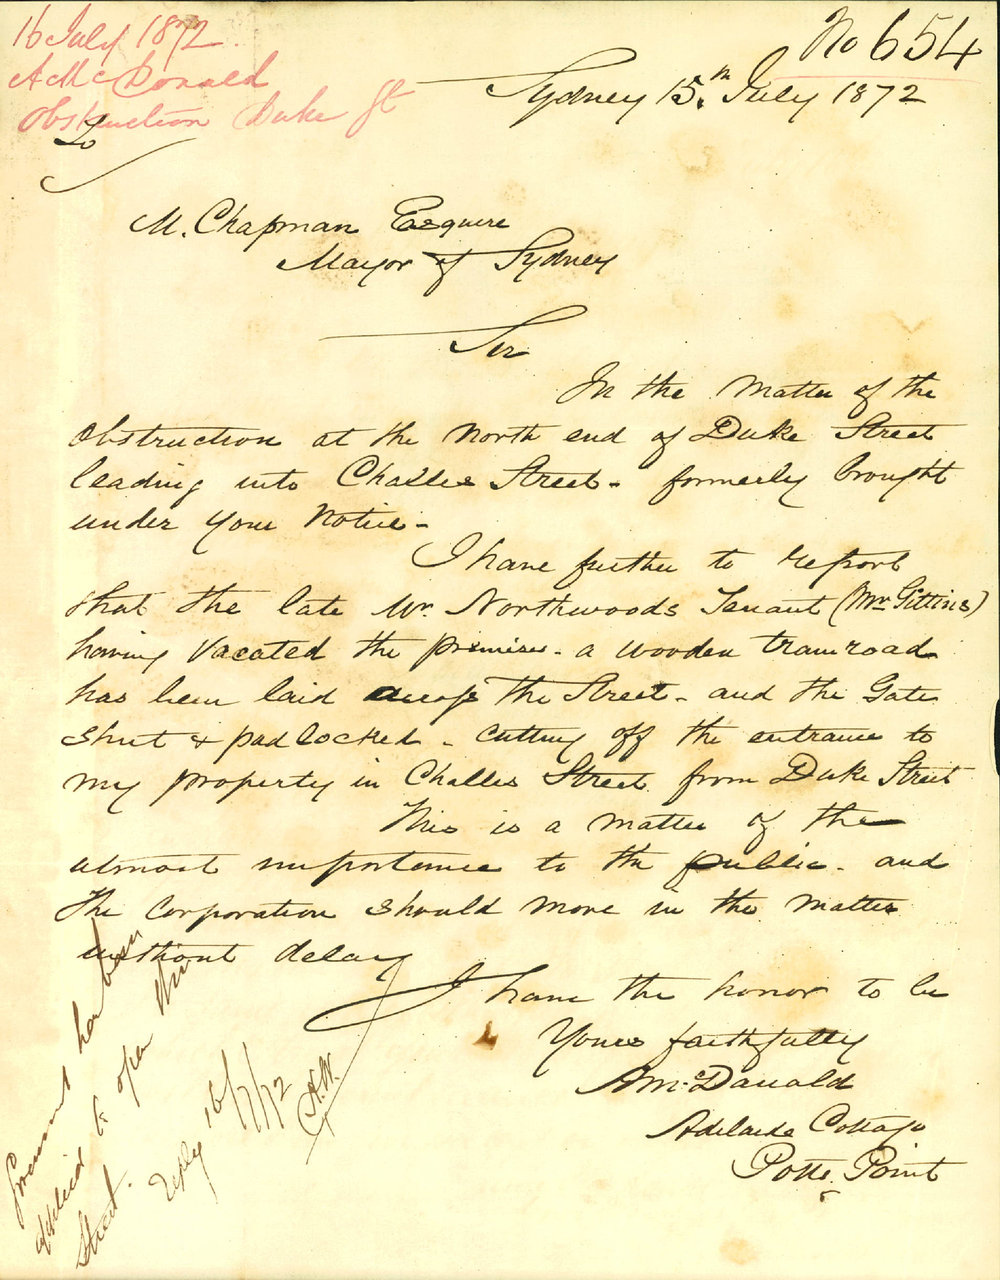 16 July 1872
A McDonald
Obstruction Duke St
No 654
Sydney 15.th July 1872
To
M. Chapman Esquire
Mayor of Sydney
Sir
In the matter of the
obstruction at the North end of Duke Street
leading into Challis Street - formerly brought
under your Notice -
I have further to report
that the late Mr. Northwoods Tenant (Mr Gittins)
having vacated the premises - a wooden tramroad
has been laid across the Street - and the Gate
shut & padlocked - cutting off the entrance to
my property in Challis Street from Duke Street
This is a matter of the
utmost importance to the public - and
the Corporation should move in the matter
without delay
I have the honor to be
Yours faithfully
A McDonald
Adelaide Cottage
Potts Point
Government has been
applied to open this
Street.
Reply 16/7/72